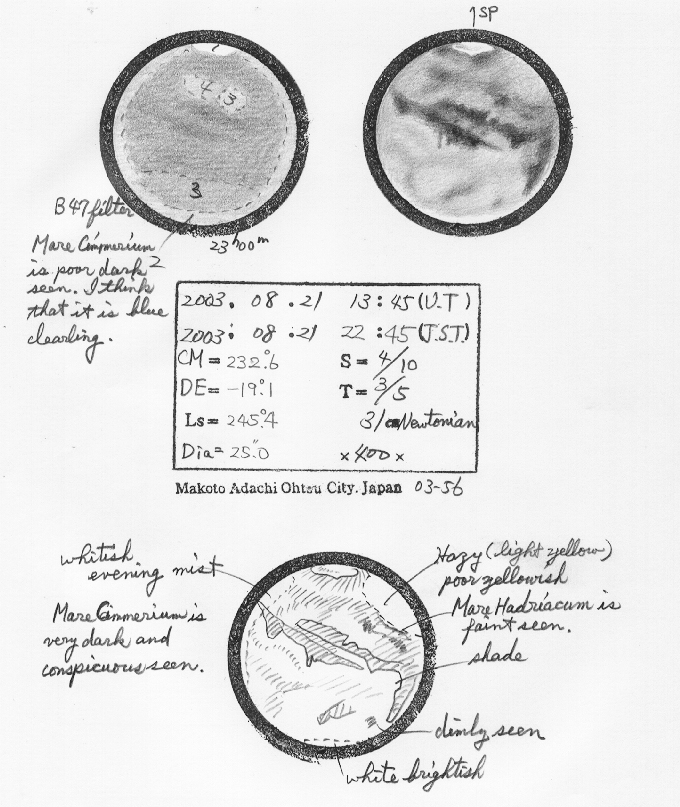 ↑SP
4
3
3
2
B47 filter
23ʰ00ᵐ
Mare Cimmerium
is poor dark
seen. I think
that it is blue
clearling.
2003. 08 .21 13:45 (U.T)
2003. 08 .21 22:45 (J.S.T.)
CM= 232.°6 S= 4/10
DE= -19.°1 T= 3/5
Ls= 245.°4 31cm Newtonian
Dia= 25."0 ×400×
Makoto Adachi Ohtsu City. Japan 03-56
whitish
evening mist
Hazy (light yellow)
poor yellowish
Mare Cimmerium is
very dark and
conspicuous seen.
Mare Hadriacum is
faint seen.
shade
dimly seen
white brightish